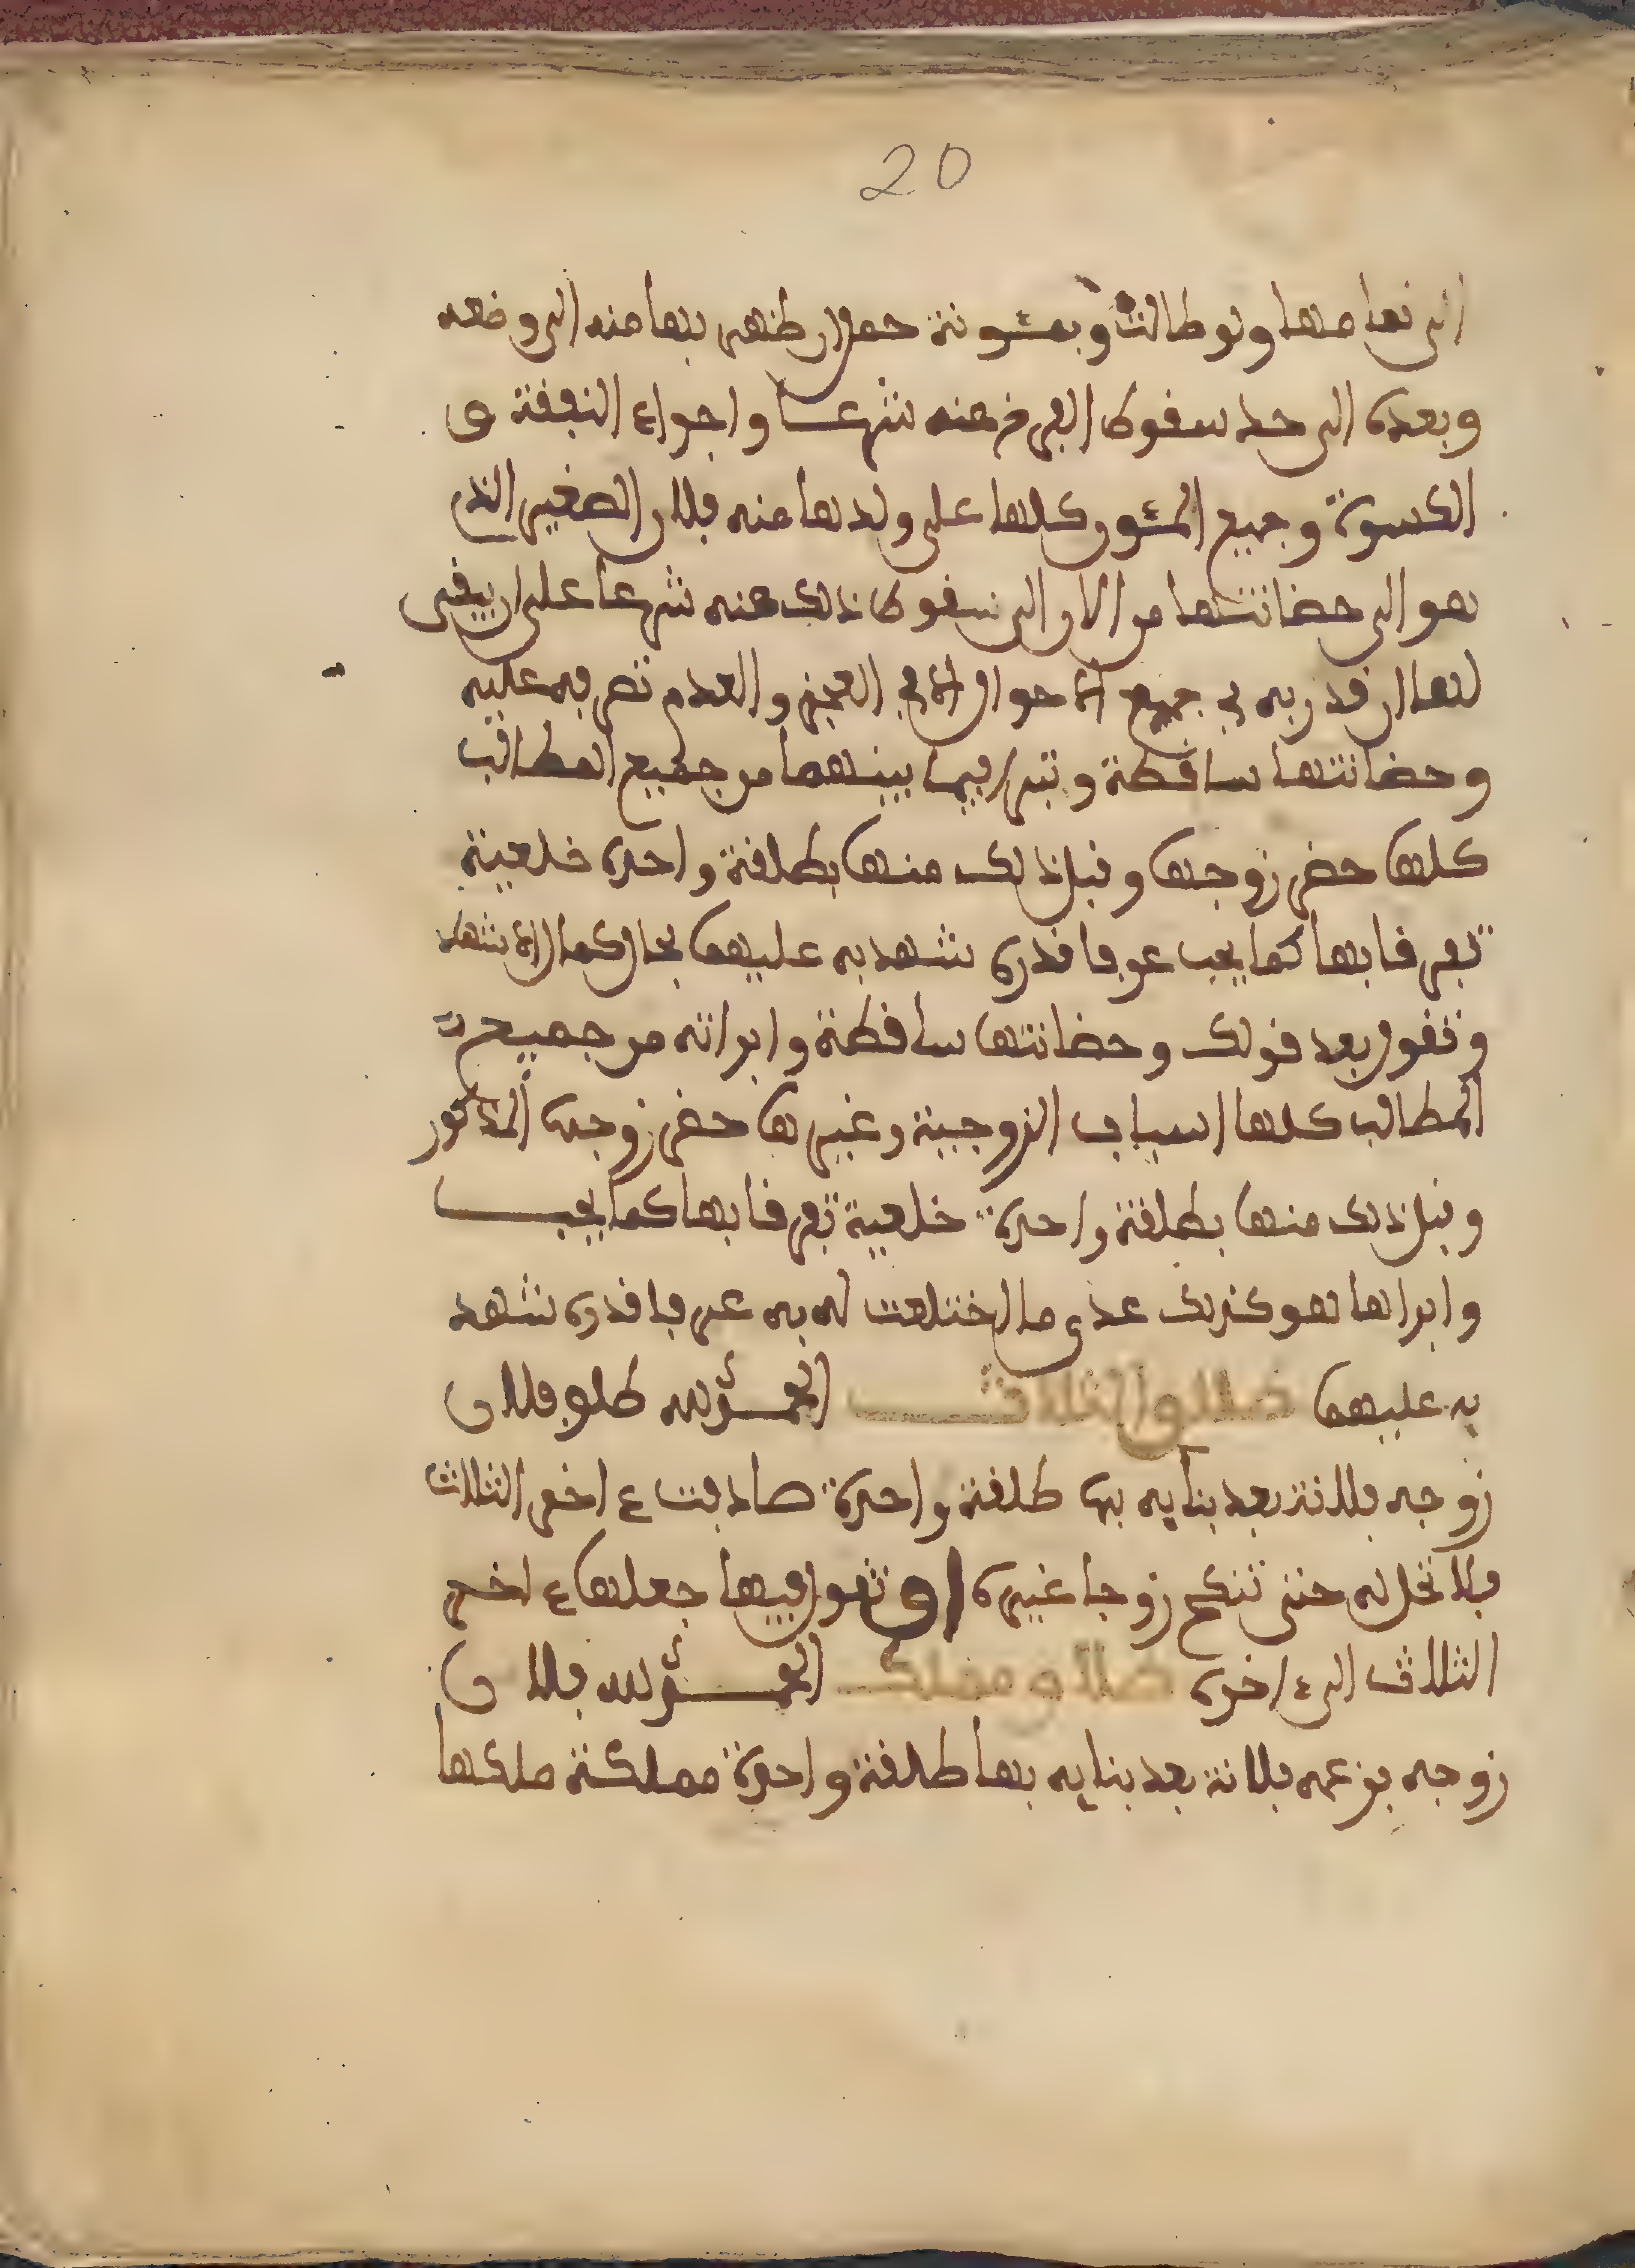 20
الى تمامها ولو طالت وبمئونة حمل ان ظهر بها منه الى وضعه
وبعده الى حد سقوط الفرض عنه شرعا واجراء النفقة و
الكسوة وجميع المئون كلها على ولدها منه فلان الصغير الذي
هو الى حضانتها من الان الى سقوط ذلك عنه شرعا على ان يبقى
لها ان قدر به في جميع الاحوال الا في العجز والعدم تصرفه عليه
وحضانتها ساقطة وتبرا فيما بينهما من جميع المطالب
كلها حضر زوجها وقبل ذلك منها بطلقة واحدة خلعية
تفرقا بها كما يجب عرفا قدره شهد به عليهما بحال كمال الاشهاد
وتقول بعد قولك وحضانتها ساقطة وابراته من جميع
المطالب كلها اسباب الزوجية وغيرها حضر زوجه المذكور
وقبل ذلك منها بطلقة واحدة خلعية تفرقا بها كما يجب
وابراها هو كذلك عدى ما اختلعت له به عرفا قدره شهد
به عليهما طلاق الثلاث الحمد لله طلق فلان
زوجه فلانة بعد بنايه بها طلقة واحدة صادفت ءاخر الثلاث
فلا تحل له حتى تنكح زوجا غيره او تقول فيها جعلها ءاخر
الثلاث الى ءاخره طلاق مملك الحمد لله فلان
زوجه بزعمه فلانة بعد بنايه بها طلقة واحدة مملكة ملكها